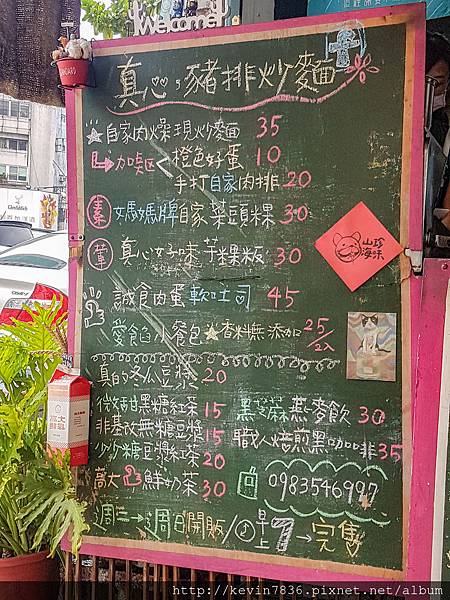 Welcome
真心,豬排炒麵
自家肉燥現炒麵 35
加噉區 橙色好蛋 10
手打自家肉排 20
素 媽媽牌自家菜頭粿 30
葷 真心好味芋粿粄 30
誠食肉蛋軟吐司 45
愛餡小餐包 香料無添加 25/2入
真的冬瓜豆漿 20
微甜黑糖紅茶 15
非基改無糖豆漿 15
少少糖豆漿紅茶 20
高大鮮奶茶 30
黑芝麻燕麥飲 30
職人焙煎黑咖啡 35
0983546997
週二→週日開販/早上7→完售
山珍海味
高大鮮乳
http://kevin7836.pixnet.net/album